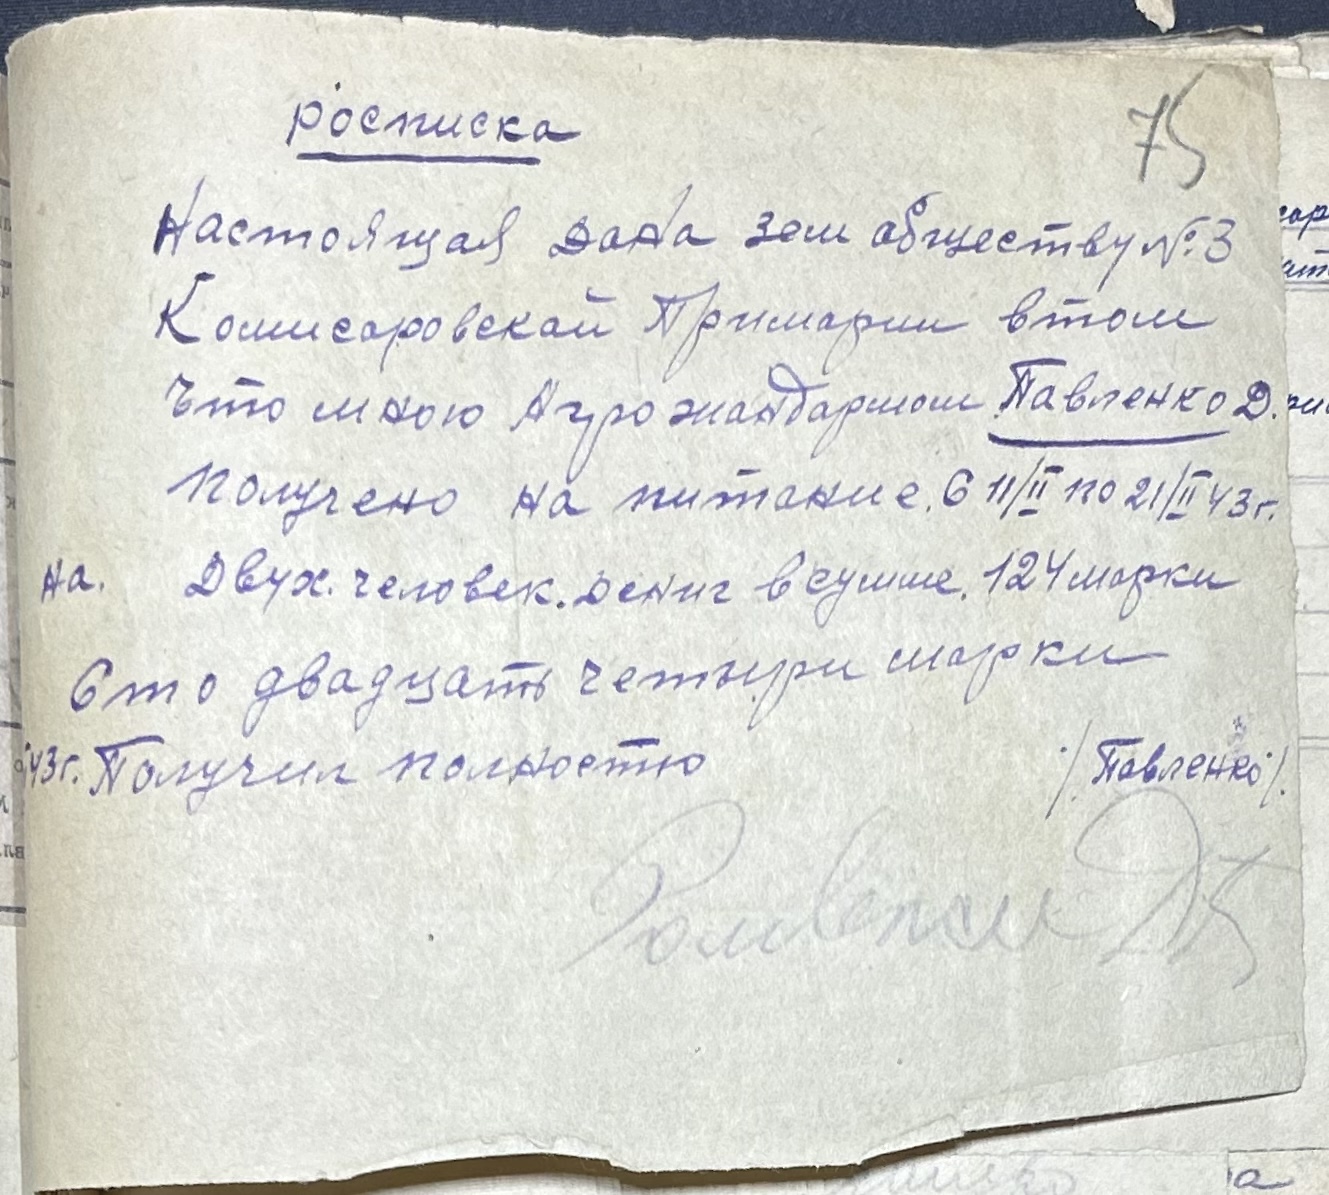 75
росписка
Настоящая дана зем обществу №3
Комисаровской Примарии втом
Что мною Агрожандармом Павленко Д.
получено на питание. С 11/II по 21/II 43г.
на. Двух. человек. дениг всумме. 124 марки
Сто двадцать четыри марки
43г. Получил полностю /. Павленко ./.